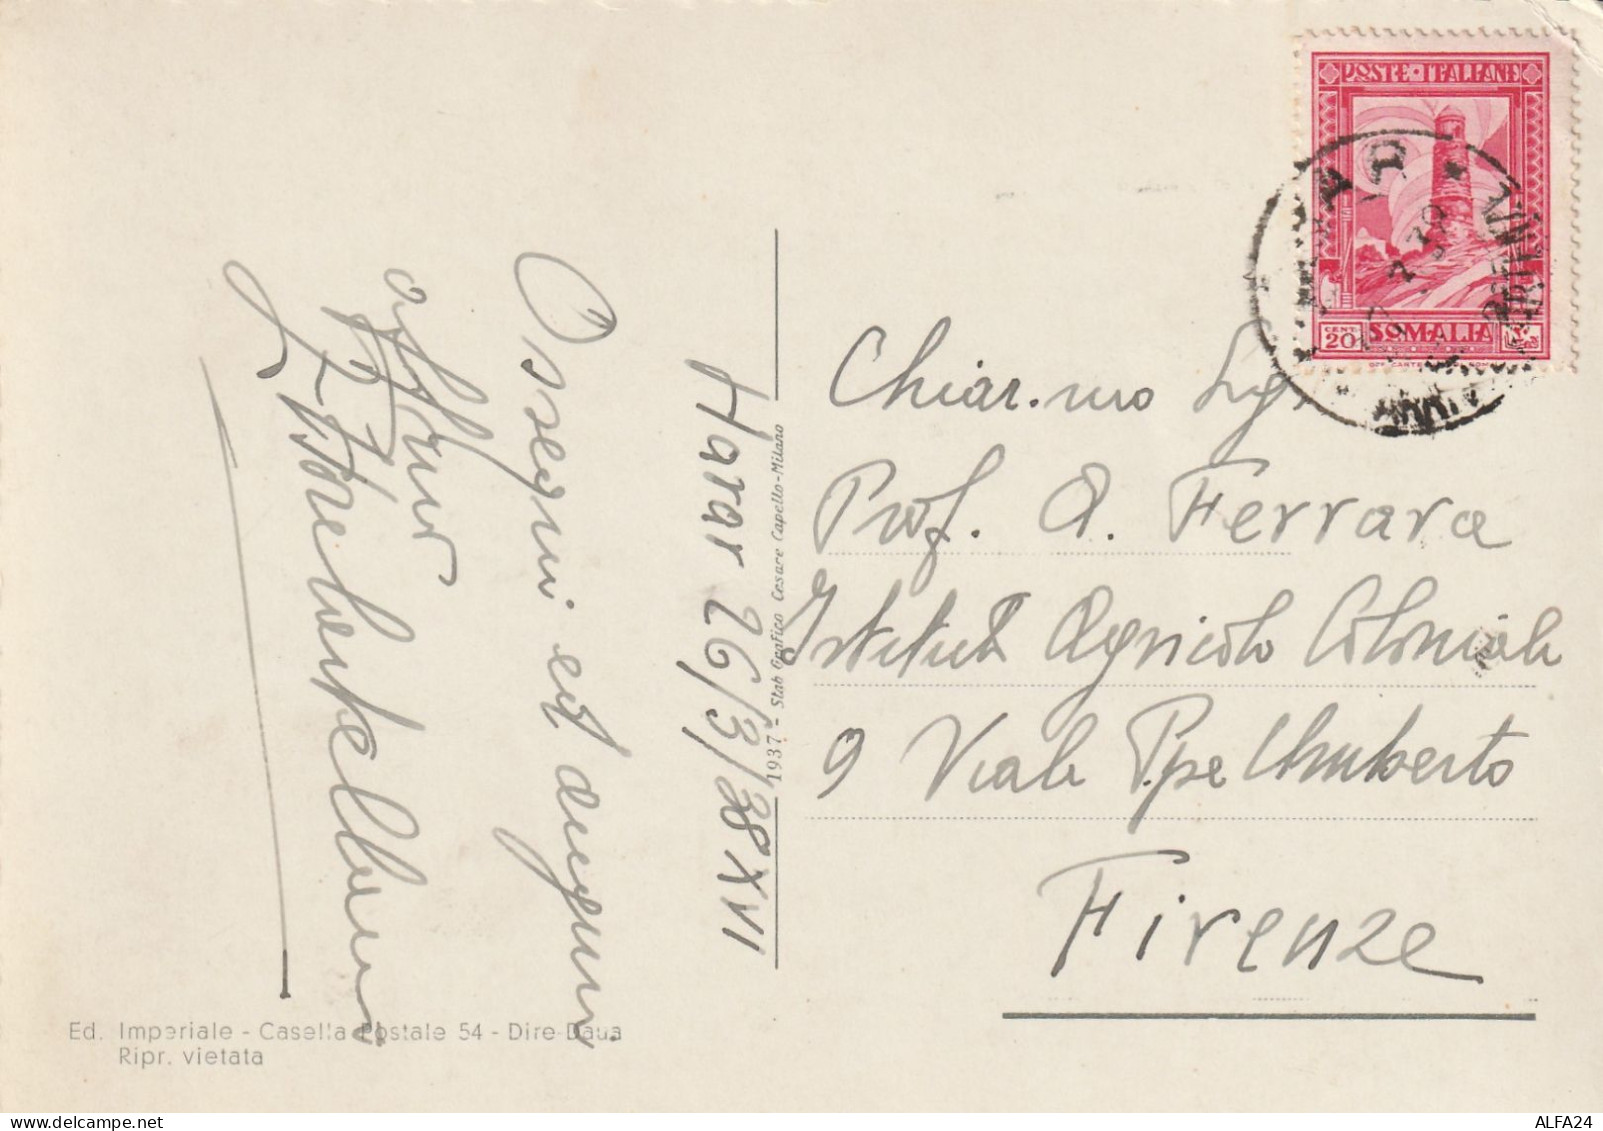 POSTE ITALIANE
CENT. 20
SOMALIA
Ossequi ed auguri
Harar 26/3/38 XVI
1937 - Stab Grafico Cesare Capello-Milano
Chiar.mo Sig.
Prof. A. Ferrara
Istituto Agricolo Coloniale
9 Viale Ppe Umberto
Firenze
Ed. Imperiale - Casella Postale 54 - Dire-Daua
Ripr. vietata
ALFA24